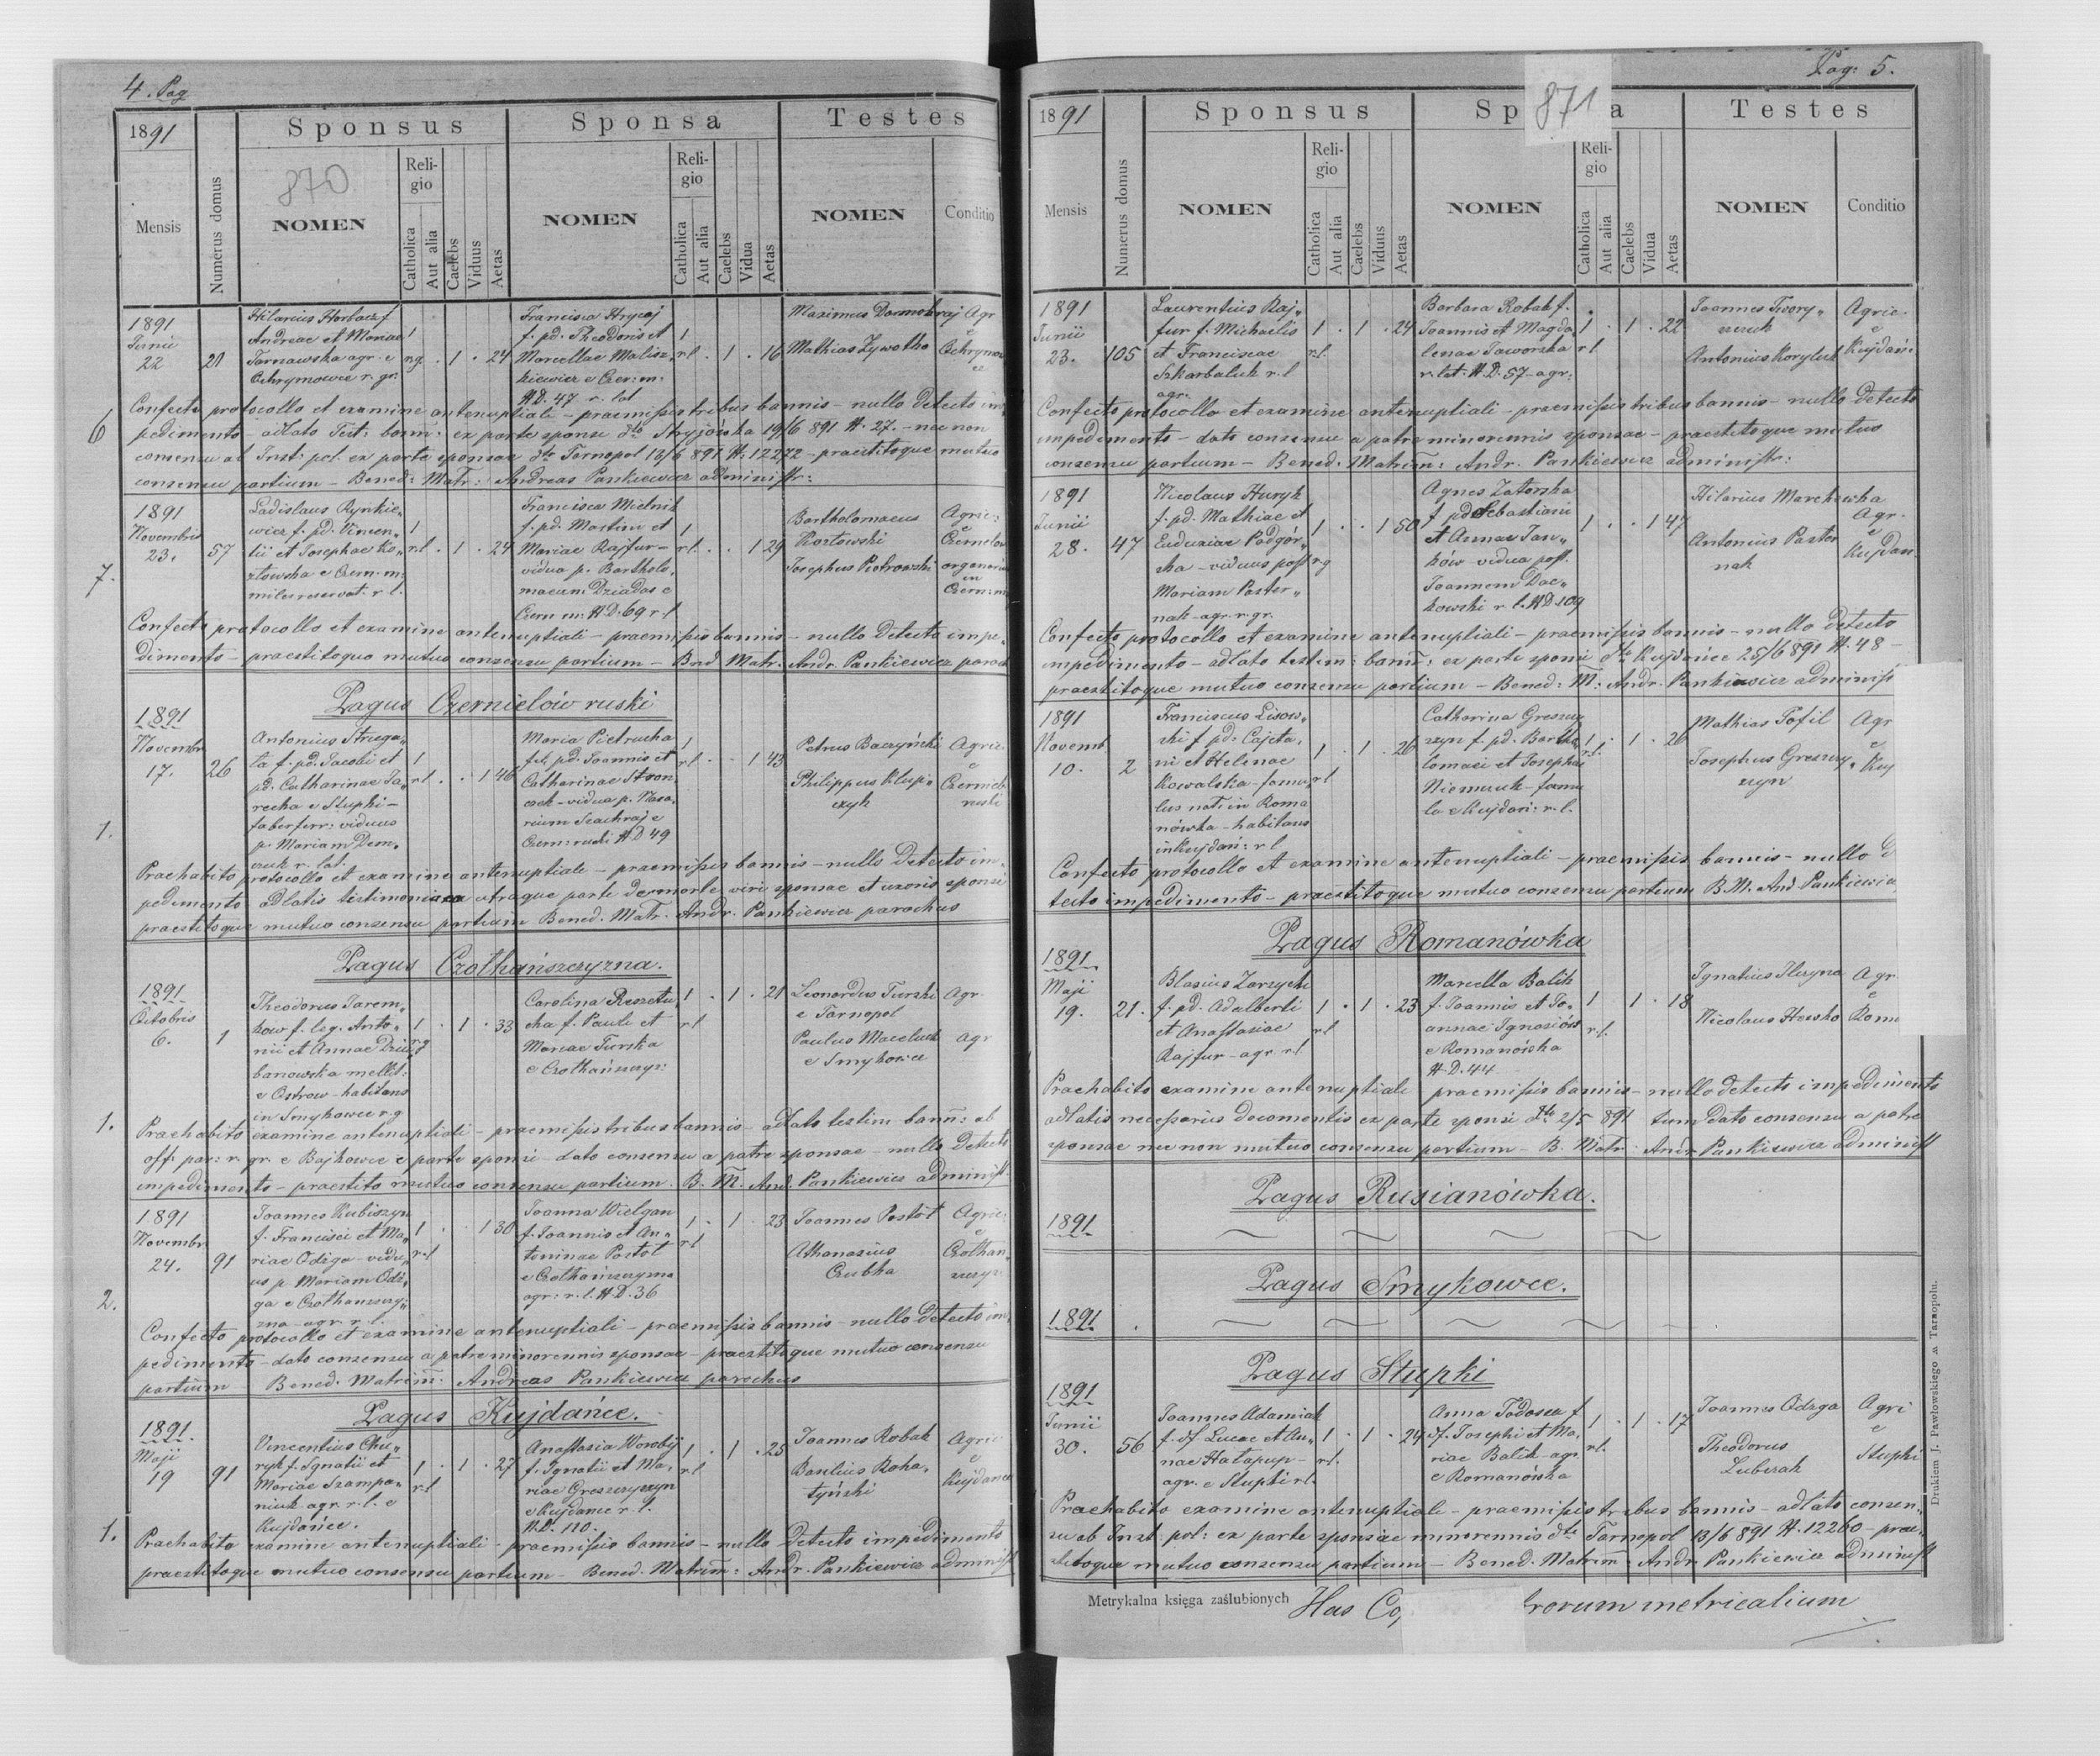 4. Pag
1891
Sponsus
Sponsa
Testes
Mensis
Numerus domus
870
NOMEN
Religio
Catholica
Aut alia
Caelebs
Viduus
Aetas
NOMEN
Religio
Catholica
Aut alia
Caelebs
Vidua
Aetas
NOMEN
Conditio
6
1891
Junii
22
21
Hilarius Horbacz f.
Andreae et Mariae
Tarnawska agr. e
Chrymowce r. gr.
1
rg . 1 . 24
Francisca Hrycaj
f. pd. Theodoris et
Marcellae Malisz
kiewicz e Czer: m:
H.D. 47 r. lat
1
rl . 1 . 16
Maximus Domobraj
Mathias Zywotko
Agr
e
Confecto protocollo et examine antenuptiali - praemissis tribus bannis - nullo detecto im
pedimento - adlato Test: bann: ex parte sponsi dto Stryjówka 19/6 891 N. 27. - nec non
consensu ab Inst: pol. ex parte sponsae dto Tarnopol 13/6 891 N: 12272 - praestitoque mutuo
consensu partium - Bened: Matr: Andreas Pankiewicz administr:
7.
1891
Novembris
23.
57
Ladislaus Rynkie„
wicz f. pd. Vincen„
tii et Josephae Ko„
złowska e Czern. m:
miles reservat. r. l.
1
r.l . 1 . 24
Francisca Mielnik
f. pd. Martini et
Mariae Rajfur -
vidua p. Bartholo„
maeum Dziadas e
Czern m: H.D. 69 r l
1
r l . . 1 29
Bartholomaeus
Kozłowski
Josephus Piotrowski
Agric:
e
Czernelow
organarius
in
Czern: m
Confecto protocollo et examine antenuptiali - praemissis bannis - nullo detecto impe„
dimento - praestitoque mutuo consensu partium - Bnd Matr. Andr. Pankiewicz paroch
Pagus Czernielów ruski
1.
1891
Novembr
17.
26
Antonius Struga„
ła f. pd. Jacobi et
pd. Catharinae Ja„
recka e Stupki -
faber ferr: viduus
p. Mariam Dem„
czuk r. lat.
1
r l . . 1 46
Maria Pietrucha
fil. pd. Joannis et
Catharinae Stron„
cek - vidua p. Naza„
rium Szachraj e
Czern: ruski H D 49
1
r l . . 1 43
Petrus Baczyński
Philippus Klup„
czyk
Agric
e
Czernieb
ruski
Praehabito protocollo et examine antenuptiale - praemissis bannis - nullo detecto im„
pedimento adlatis testimoniis ex utraque parte de morte viri sponsae et uxoris sponsi
praestitoque mutuo consensu partium Bened. Matr. Andr. Pankiewicz parochus
Pagus Czołhańszczyzna.
1.
1891
Octobris
6.
1
Theodorus Jarem„
kow f. leg. Anto„
nii et Annae Dziu„
banowska
e Ostrow - habitans
in Smykowce r. g.
1 . 1 . 33
rg
Carolina Reszetu
cha f. Pauli et
Mariae Turska
e Czołhańszczyz:
1 . 1 . 21
r l
Leonardus Turski
e Tarnopol
Paulus Maceluch
e Smykowce
Agr.
Agr
Praehabito examine antenuptiali - praemissis tribus bannis - adlato testim bann: ab
off: par: r. gr. e Bajkowce e parte sponsi - dato consensu a patre sponsae - nullo detecto
impedimento - praestito mutuo consensu partium. B. M. And. Pankiewicz administ
2.
1891
Novembr
24.
91
Joannes Kubiszyn
f. Francisci et Ma„
riae Odzga - vidu„
us p. Mariam Odz„
ga e Czołhanszczy„
zna - agr. r. l.
1 . . 1 30
r l
Joanna Wielgan
f. Joannis et An„
toninae Postół
e Czołhańszczyzna
agr: r. l. H.D. 36
1 . 1 . 23
r l
Joannes Postół
Athanasius
Czubka
Agric:
e
Czołhan„
szczyz:
Confecto protocollo et examine antenuptiali - praemissis bannis - nullo detecto im„
pedimento - dato consensu a patre minorennis sponsae - praestitoque mutuo consensu
partium - Bened. Matrim: Andreas Pankiewicz parochus
Pagus Kujdańce.
1.
1891.
Maji
19
91
Vincentius Chu„
ryk f. Ignatii et
Mariae Szampa„
niuk agr. r. l. e
Kujdańce.
1 . 1 . 27
r l
Anastasia Worobij
f. Ignatii et Ma„
riae Greszczyszyn
e Kujdance r. l.
N.D. 110.
1 . 1 . 25
r l
Joannes Robak
Basilius Roha„
tyński
Agric
e
Kujdance
Praehabito examine antenuptiali - praemissis bannis - nullo detecto impedimento
praestitoque mutuo consensu partium - Bened. Matrim: Andr. Pankiewicz administ
Pag: 5.
871
1891
Sponsus
Sp a
Testes
Mensis
Numerus domus
NOMEN
Religio
Catholica
Aut alia
Caelebs
Viduus
Aetas
NOMEN
Religio
Catholica
Aut alia
Caelebs
Vidua
Aetas
NOMEN
Conditio
1891
Junii
23.
105
Laurentius Raj„
fur f. Michaelis
et Franciscae
Szkarbaluk r. l
agr.
1 . 1 . 24
r.l.
Barbara Robak f.
Joannis et Magda
lenae Jaworska
r. lat. H.D. 57 - agr:
1 . 1 . 22
r l
Joannes Jwory„
szuk
Antonius Koryluk
Agric.
e
Kujdań:
Confecto protocollo et examine antenuptiali - praemissis tribus bannis - nullo detecto
impedimento - dato consensu a patre minorennis sponsae - praestitoque mutuo
consensu partium - Bened: Matrim: Andr. Pankiewicz administr:
1891
Junii
28.
47
Nicolaus Huryk
f. pd. Mathiae et
Eudoxiae Podgór„
ska - viduus post
Mariam Paster„
nak - agr. r. gr.
1 . . 1 50
r g
Agnes Zatorska
f pd Sebastiani
et Annae Jan„
ków vidua post.
Joannem Dac„
kowski r. l. H D 109
1 . . 1 47
Hilarius Marchewka
Antonius Paster
nak
Agr.
e
Kujdan.
Confecto protocollo et examine antenuptiali - praemissis bannis - nullo detecto
impedimento - adlato testim: bann: ex parte sponsi dto Kujdańce 25/6 891 N. 48 -
praestitoque mutuo consensu partium - Bened: M: Andr. Pankiewicz administ
1891
Novemb.
10.
2
Franciscus Lisow„
ski f. pd. Cajeta„
ni et Helenae
Kowalska - famu„
lus nat. in Roma
nówka - habitans
in Kujdań: r l
1 . 1 . 26
r l
Catharina Greszczy
szyn f. pd. Bartho
lomaei et Josephae
Niemczuk - famu
la e Kujdań: r. l.
1 . 1 . 26
r.l.
Mathias Tofil
Josephus Greszczy„
szyn
Agr
e
Kuj
Confecto protocollo et examine antenuptiali - praemissis bannis - nullo d
tecto impedimento - praestitoque mutuo consensu partium B. M. And Pankiewicz
Pagus Romanówka
1891
Maji
19.
21.
Blasius Zarzycki
f. pd. Adalberti
et Anastasiae
Rajfur - agr. r l
1 . 1 . 23
r l
Marcella Balik
f. Joannis et Jo„
annae Ignasiów
e Romanówka
H.D. 44
1 1 . 18
r.l.
Ignatius Iluzyna
Nicolaus Hewko
Agr.
e
Roma
Praehabito examine antenuptiali praemissis bannis - nullo detecto impedimento
adlatis necessariis documentis ex parte sponsi dto 2/5 891 tum dato consensu a patre
sponsae nec non mutuo consensu partium - B. Matr: Andr Pankiewicz administ
Pagus Rusianówka.
1891
Pagus Smykowce.
1891
Pagus Stupki
1891
Junii
30.
56
Joannes Adamiak
f. Lucae et An„
nae Hałapup -
agr. e Stupki r l
1 . 1 . 24
r l.
Anna Fedoszca f
Josephi et Ma„
riae Balik - agr.
e Romanówka
1 . 1 . 17
r l.
Joannes Odzga
Theodorus
Luberak
Agri
e
Stupki
Praehabito examine antenuptiale - praemissis tribus bannis - adlato consen„
su ab Inst pol: ex parte sponsae minorennis dto Tarnopol 13/6 891 N. 12260 - prae„
stitoque mutuo consensu partium - Bened. Matrim: Andr Pankiewicz administ
Metrykalna księga zaślubionych
Has Co
rorum metricalium
Drukiem J. Pawłowskiego w Tarnopolu.